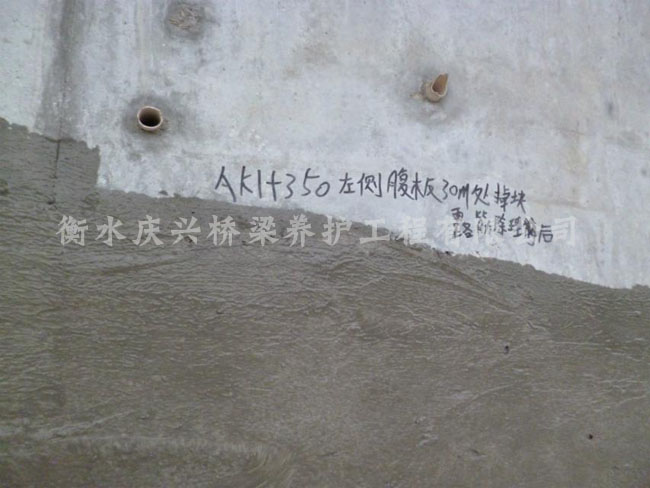 AK1+350左侧腹板30m处掉块
露筋除理后
衡水庆兴桥梁养护工程有限公司